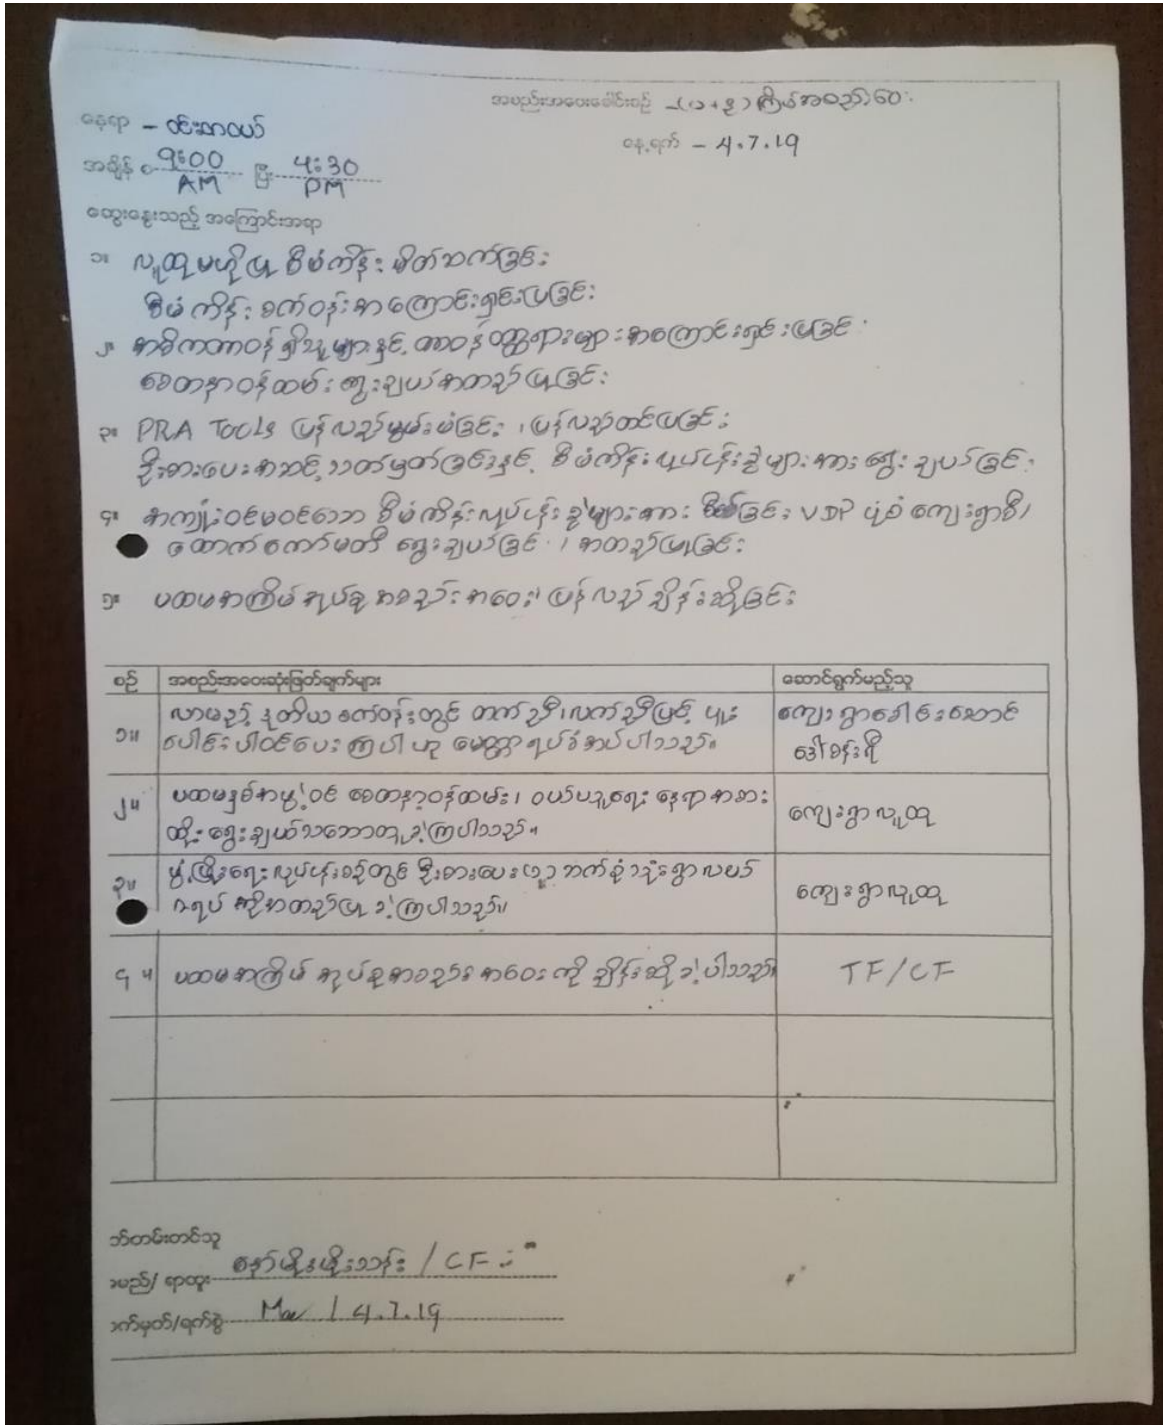 အစည်းအဝေးခေါင်းစဉ် - (၁+၃) ကြိမ်အစည်းဝေး
နေရာ - ဝင်းတာယယ်
နေ့ရက် - 4.7.19
အချိန် စ 9:00 AM ပြီး 4:30 PM
ဆွေးနွေးသည့် အကြောင်းအရာ
၁။ လူထုမဟိုပြု စီမံကိန်း မိတ်ဆက်ခြင်း
စီမံကိန်း စက်ဝန်းအကြောင်းရှင်းပြခြင်း
၂။ အဓိကတာဝန်ရှိသူများနှင့် တာဝန်ဝတ္တရားများအကြောင်းရှင်းပြခြင်း
စေတနာ့ဝန်ထမ်း ရွေးချယ်အတည်ပြုခြင်း
၃။ PRA Tools ပြန်လည်မွမ်းမံခြင်း ၊ ပြန်လည်တင်ပြခြင်း
ဦးစားပေးအဆင့်သတ်မှတ်ခြင်းနှင့် စီမံကိန်းလုပ်ငန်းခွဲများအား ရွေးချယ်ခြင်း
၄။ အကျုံးဝင်မဝင်သော စီမံကိန်းလုပ်ငန်းခွဲများအား စိစစ်ခြင်း VDP ပုံစံ ကျေးရွာစီ၊
ထောက်ကော်မတီ ရွေးချယ်ခြင်း ၊ အတည်ပြုခြင်း
၅။ ပထမအကြိမ် အုပ်စုအစည်းအဝေး ပြန်လည်ချိန်းဆိုခြင်း
စဉ် အစည်းအဝေးဆုံးဖြတ်ချက်များ ဆောင်ရွက်မည့်သူ
၁။ လာမည့် ဒုတိယ စက်ဝန်းတွင် တက်ညီလက်ညီဖြင့် ပူး
ပေါင်းပါဝင်ပေးကြပါဟု မေတ္တာရပ်ခံအပ်ပါသည်။ ကျေးရွာခေါင်းဆောင်
ဒေါ်ခန်းရီ
၂။ ပထမနှစ်အဖွဲ့ဝင် စေတနာ့ဝန်ထမ်း၊ ဝယ်ယူရေး နေရာအစား
ထိုး ရွေးချယ်သဘောတူခဲ့ကြပါသည်။ ကျေးရွာလူထု
၃။ ဖွံ့ဖြိုးရေးလုပ်ငန်းစဉ်တွင် ဦးစားပေး (၃) ဘက်စုံသုံးရွာလယ်
ဂရပ် ကိုအတည်ပြုခဲ့ကြပါသည်။ ကျေးရွာလူထု
၄။ ပထမအကြိမ် အုပ်စုအစည်းအဝေးကို ချိန်းဆိုခဲ့ပါသည်။ TF/CF
ဘ်တမ်းတင်သူ
အမည်/ ရာထူး နော်မိုးမိုးသန်း / CF
က်မှတ်/ရက်စွဲ Moe / 4.7.19